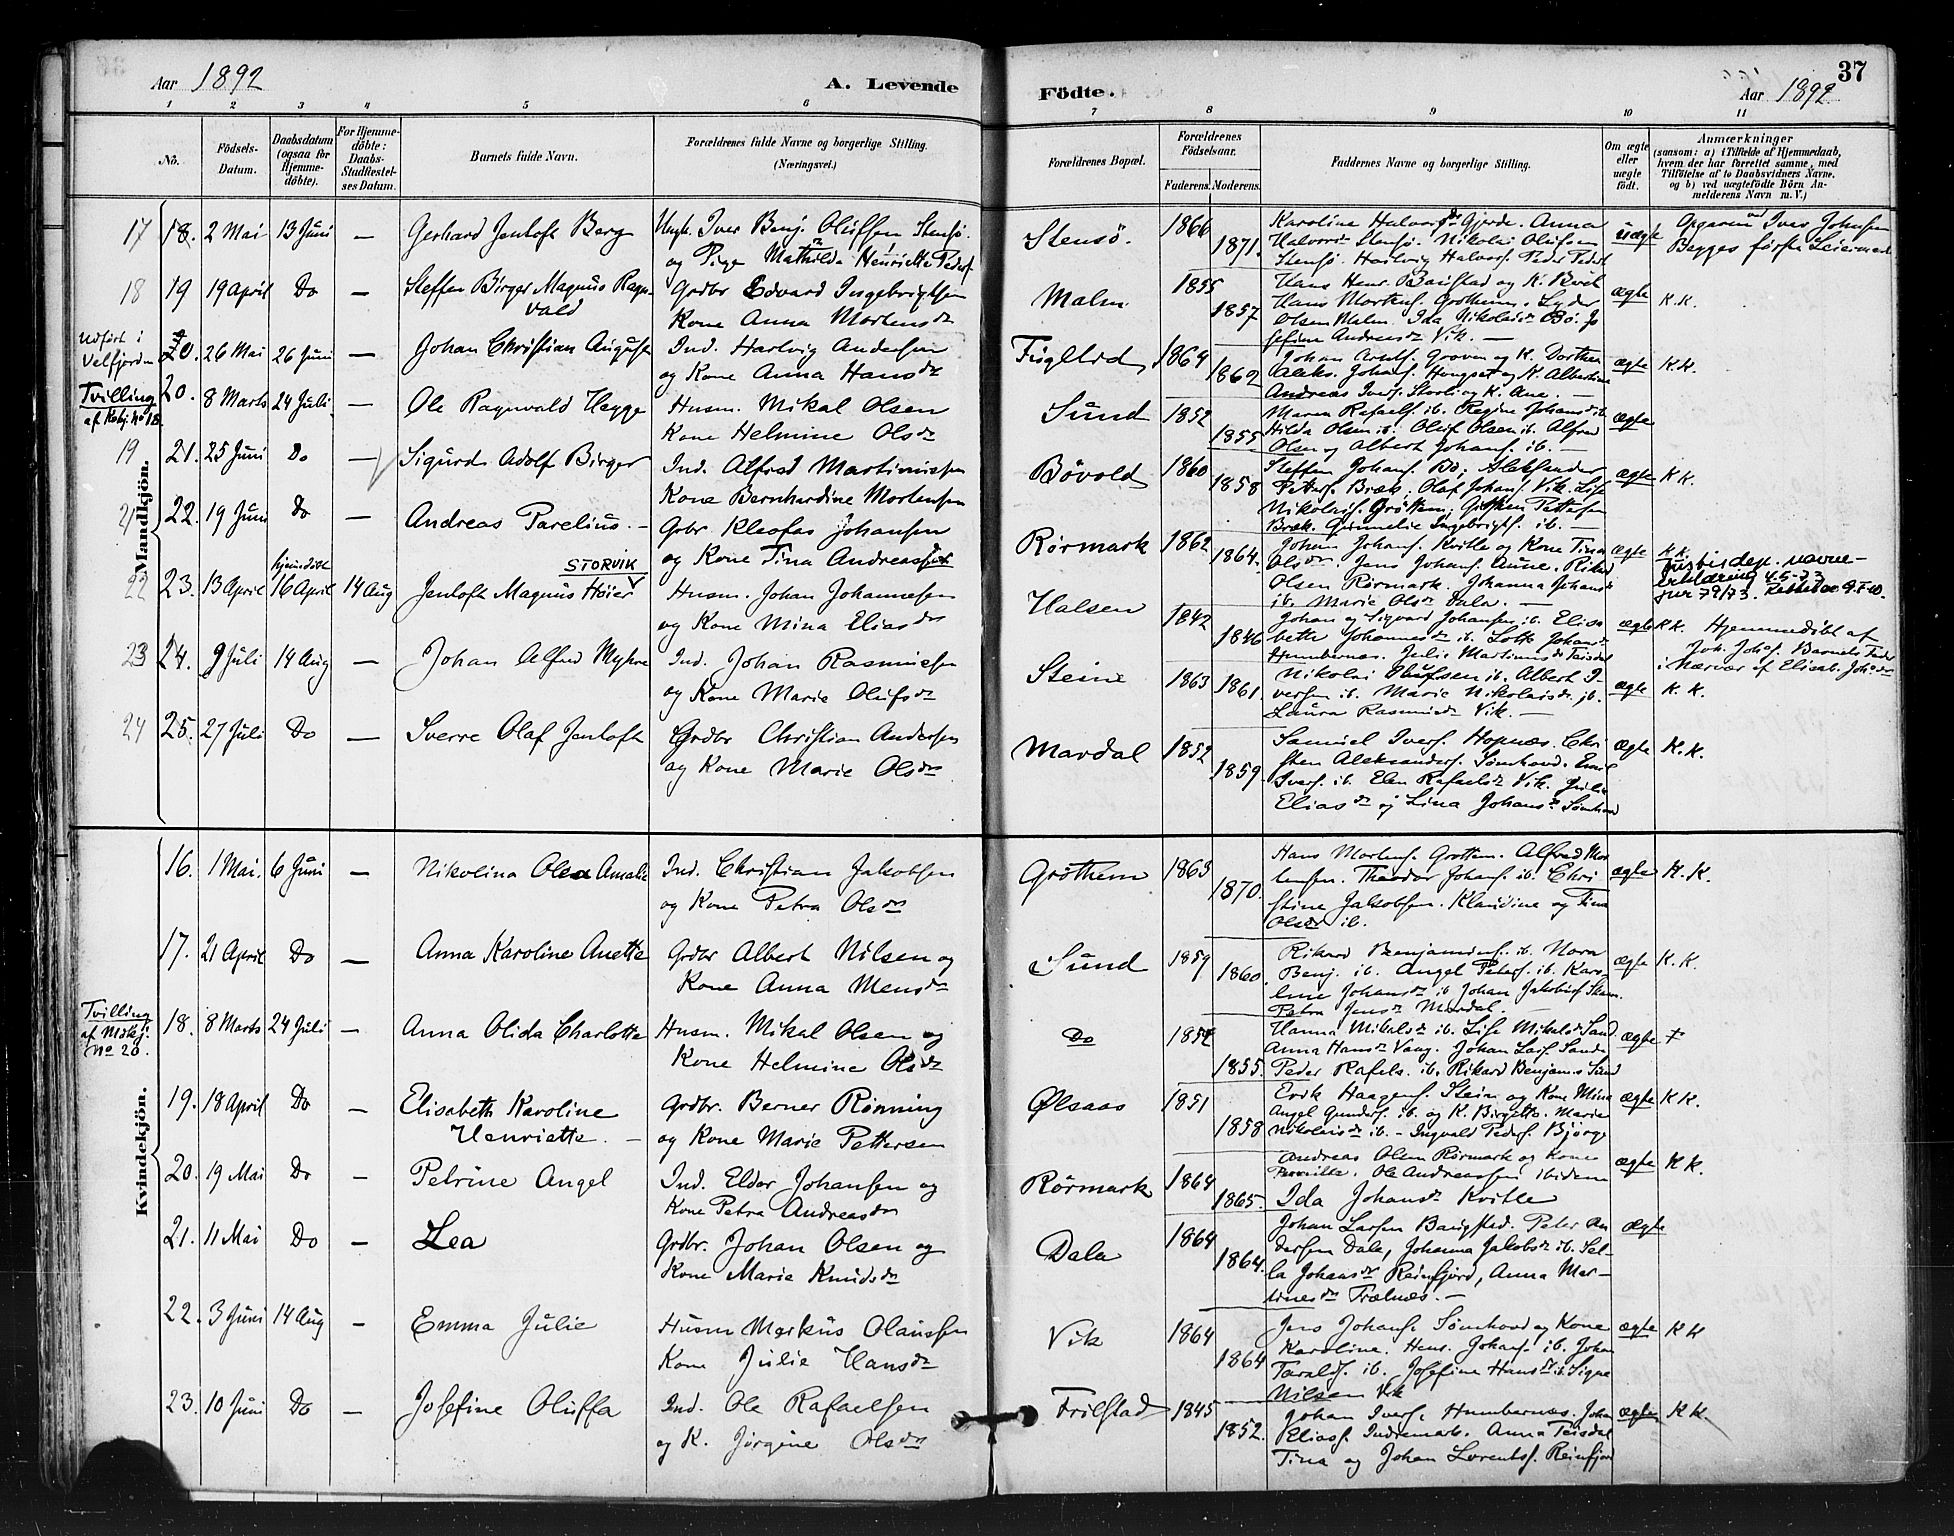 Aar 1892
A. Levende
Födte.
Aar 1892
37
1 2 3 4 5 6 7 8 9 10 11
No.
Födsels-
Datum.
Daabsdatum
(ogsaa for
Hjemme-
döbte).
For Hjemme-
döbte:
Daabs-
Stadfæstel-
ses Datum.
Barnets fulde Navn.
Forældrenes fulde Navne og borgerlige Stilling.
(Næringsvei.)
Forældrenes Bopæl.
Forældrenes
Födselsaar.
Faderens. Moderens.
Faddernes Navne og borgerlige Stilling.
Om ægte
eller
uægte
födt.
Anmærkninger
(saasom: a) i Tilfælde af Hjemmedaab,
hvem der har forrettet samme, med
Tilföielse af to Daabsvidners Navne.
og b) ved uægtefödte Börn An-
melderens Navn m. V.)
Mandkjön.
17 18. 2 Mai 13 Juni — Gerhard Jenloft Berg
Ungk. Iver Benj. Olufsen Stensö.
og Pige Mathilda Henriette Peders
Stensö. 1866 1871.
Karoline Halvorsdr Gjerde. Anna
Stensö. Nikolai Olufsen
Stensö. Hartvig Halvors. Peder Peders
uægte
Opgave ved Iver Johnsen
Begges første Leiermaal
18 19 19 April Do — Steffen Birger Magnus Ragn-
vald
Grdbr Edvard Ingebrigtsen
Kone Anna Mortensdr
Malm 1855 1857
Hans Henr. Baustad og K. Kvil
Hans Mortens. Grøthem. Lyder
Olsen Malm. Ida Nikolaisdr Bö. Jo
sefine Andreasdr Vik. —
ægte K.K.
Udført i
Velfjorden
20. 26 Mai 26 Juni — Johan Christian August
Ind. Hartvig Andersen
og Kone Anna Hansdr
Fuglstad 1864 1862
Johan Arnts. Groven og K. Dorthea
Aleks. Johans. Hongset og K. Albertine
Andreas Ivers. Storli og K. Ane. —
ægte K.K.
Tvilling
af Kvkj. No 18.
20. 8 Marts 24 Juli. — Ole Ragnvald Hegge
Husm. Mikal Olsen
Kone Helmine Olsdr
Sund 1852 1855
Maren Rafaels. ib. Regine Johansdr ib.
Hilda Olsen ib. Oluf Olsen ib. Alfred
Olsen og Albert Johans. ib. —
ægte
19 21. 25 Juni Do — Sigurd Adolf Birger
Ind. Alfred Martinussen
Kone Bernhardine Mortensen
Bövold 1860 1858
Steffen Johans. Bö. Aleksander
Petters. Bræk. Olaf Johans. Vik. Lise
Nikolais. Gröttem. Petersen
Bræk. Ingebrigts. ib. —
ægte K K.
21 22. 19 Juni Do — Andreas Parelius. —
Grbr Kleofas Johansen
og Kone Tina Andreasdr
Rörmark 1862 1864.
Johan Johans. Kvitle og Kone Tina
Olsdr. Jens Johans. Aune. Rikard
Olsen Rørmark. Johanna Johansdr
ib. Marie Olsdr Dala. —
ægte K.K.
Justisdep. navne-
erklæring 4.5-33
jnr 79/73.
22 23. 13 April hjemdöbt 16 April 14 Aug Jenloft Magnus Höier
STORVIK
Husm. Johan Johannesen
og Kone Mina Eliasdr
Halsen 1842 1846
Johan og Sigvard Johansen ib. Elisa
bette Johannesdr ib. Lotte Johansdr
Humbernæs. Julie Martinusdr Teisdal
ægte K K. Hjemmedöbt af
Joh. Johs. Barnets Fader
i Nærvær af Elisab. Johsdr
23 24. 9 Juli 14 Aug — Johan Alfred Myhre
Ind. Johan Rasmussen
og Kone Marie Olufsdr
Steine 1863 1861.
Nikolai Olufsen ib. Albert I-
versen ib. Marie Nikolaisdr ib.
Laura Rasmusdr Vik. —
ægte K. K.
24 25. 27 Juli Do — Sverre Olaf Jenloft
Grdbr Christian Andersen
og Kone Marie Olsdr
Mardal 1852 1859.
Samuel Ivers. Hopnæs. Chri
sten Aleksanders. Sömhovd. Emil
Ivers. ib. Elen Rafaelsdr Vik. Julie
Eliasdr og Lina Johansdr Sömhovd
ægte K.K.
Kvindekjön.
16. 1 Mai. 6 Juni — Nikolina Olea Amalie
Ind. Christian Jakobsen
og Kone Petra Olsdr
Gröthem 1863 1870.
Hans Mortens. Grøttem. Alfred Mor
tensen. Theodor Johans. ib. Chri
stine Jakobsen. Klaudine og Tina
Olsdr ib.
ægte K.K.
17. 21 April Do — Anna Karoline Anette
Grdbr Albert Nilsen og
Kone Anna Mensdr
Sund 1859 1860.
Rikard Benjamins. ib. Nora
Benj. ib. Angel Peters. ib. Karo
line Johansdr ib. Johan Jakobs.
Petra Jensdr Mardal. —
ægte K.K.
Tvilling
af Mdkj.
No 20.
18. 8 Marts 24 Juli — Anna Olida Charlotte
Husm. Mikal Olsen og
Kone Helmine Olsdr
Do 1852 1855.
Hanna Mikalsdr ib. Lise Mikalsdr Sund.
Anna Hansdr Vaag. Johan Sund
Peder Rafels. ib. Rikard Benjamins Sund
ægte +
19. 18 April Do — Elisabeth Karoline
Henriette. —
Grdbr. Berner Rönning
og Kone Marie Pettersen
Ølsaas 1851 1858
Erik Haagens. Stein og Kone Mina
Angel Gunders. ib. og K. Birgette. Marie
Nikolaisdr ib. - Ingvald Peders. Bjørge
ægte K K.
20. 19 Mai Do — Petrine Angel
Ind. Eldor Johansen og
Kone Petra Andreasdr
Rörmark 1864 1865.
Andreas Olsen Rörmark og Kone
Pernille. Ole Andreassen ibidem
Ida Johansdr Kvitle
ægte K K.
21. 11 Mai Do — Lea
Grdbr. Johan Olsen og
Kone Marie Knudsdr
Dala 1864 1864.
Johan Larsen Baugstad. Peter An
dersen Dala, Johanna Jakobsdr ib. Sel-
la Johansdr Reinfjord, Anna Mar-
tinesdr Trælnæs. —
ægte
22. 3 Juni 14 Aug — Emma Julie
Husm Markus Olaussen
Kone Julie Hansdr
Vik 1864 1864
Jens Johans. Sømhovd og Kone
Karoline. Hens. Johans. ib. Johan
Taralds. ib. Josefine Hansdr ib. Signe
Nilsen Vik
ægte K K
23. 10 Juni Do — Josefine Oluffa
Ind. Ole Rafaelsen
og K. Jörgine Olsdr
Frilstad 1845 1852.
Johan Ivers. Humbernæs. Johan
Elias. Indremark. Anna Teisdal
Tina og Johan Lorents. Reinfjord
ægte K K.